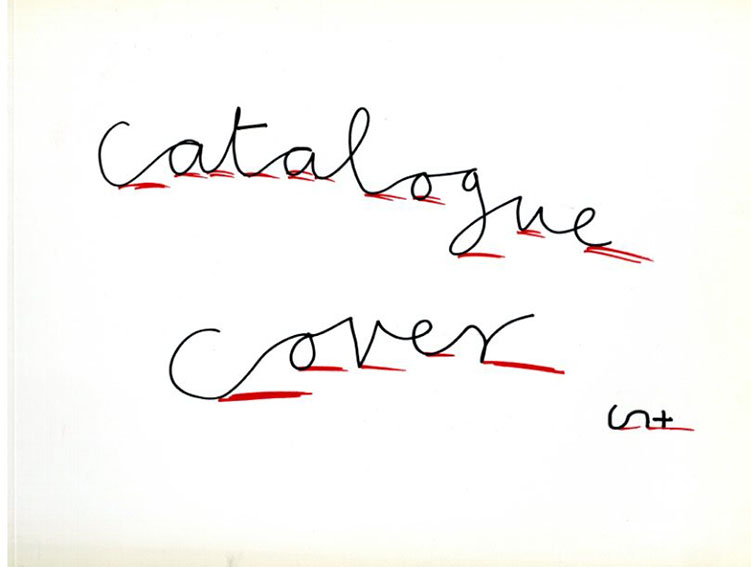 catalogue
cover